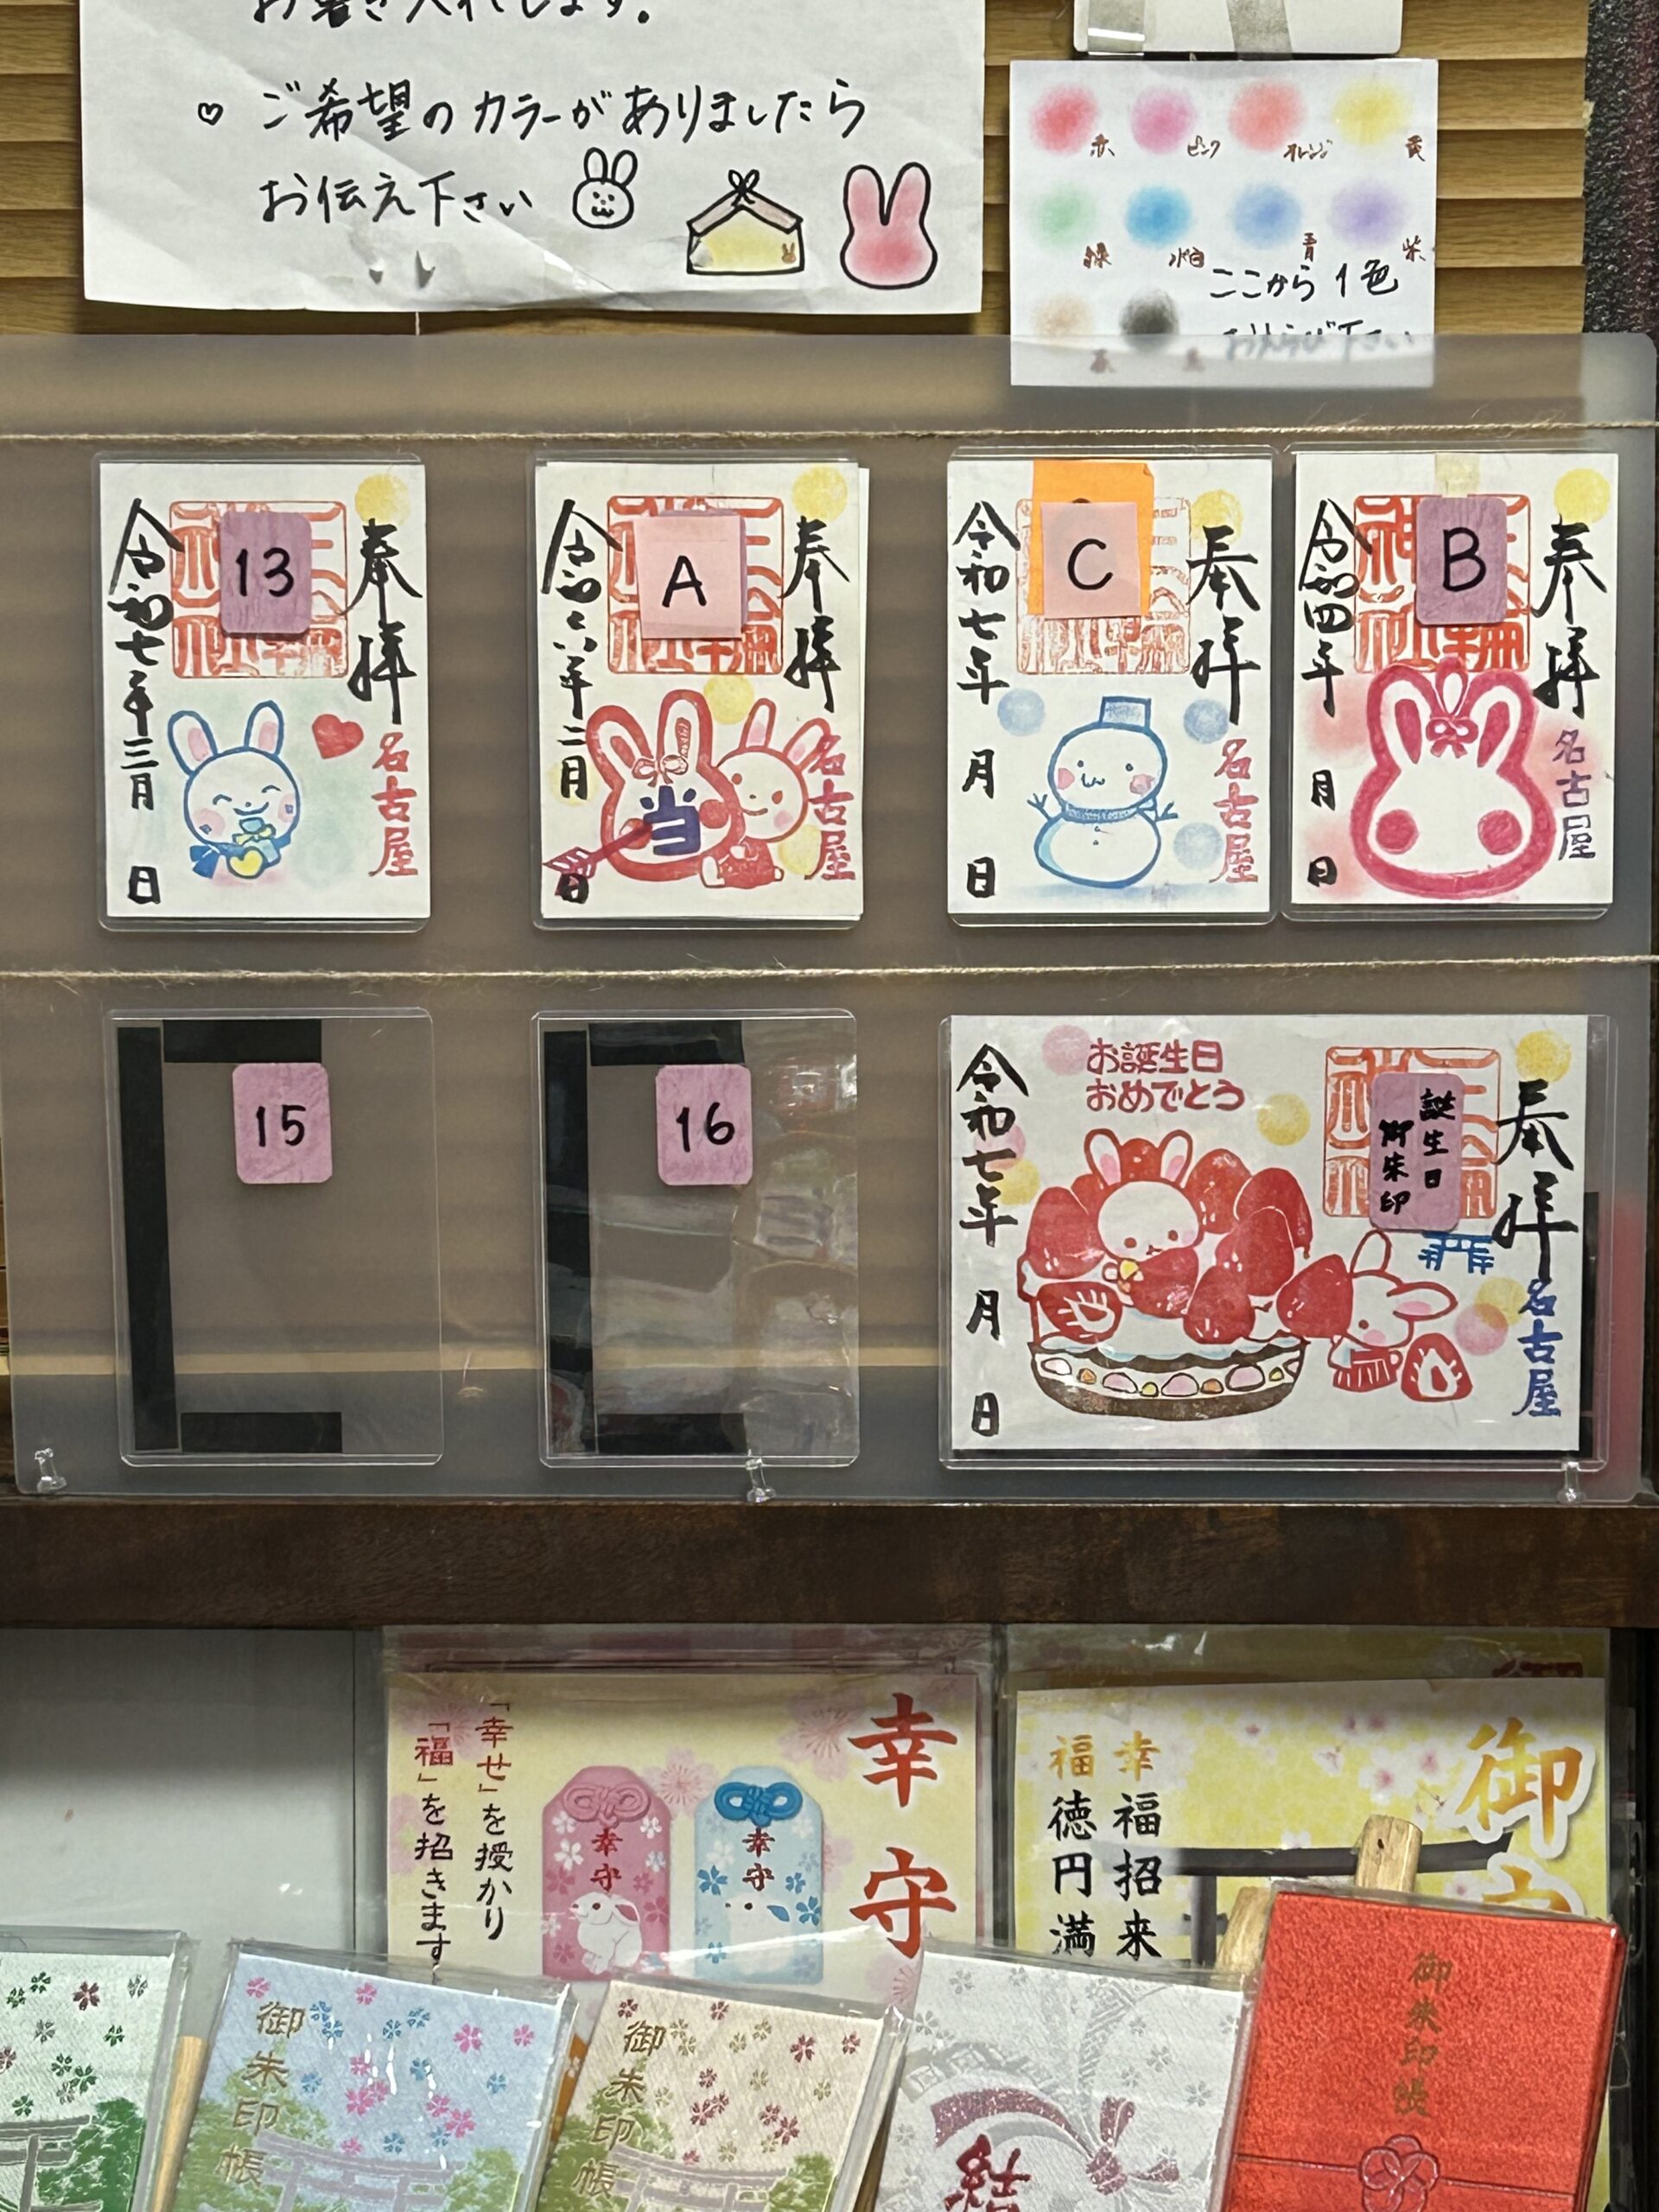 お書き入れします。
♡ ご希望のカラーがありましたら
お伝え下さい
赤 ピンク オレンジ 黄
緑 水色 青 紫
ここから1色
おえらび下さい
茶 黒
13
奉拝
名古屋
令和七年三月 日
A
奉拝
名古屋
当
二月 日
C
奉拝
名古屋
令和七年 月 日
B
奉拝
名古屋
令和四年 月 日
15
16
お誕生日
おめでとう
誕生日
御朱印
奉拝
名古屋
令和七年 月 日
幸守
「幸せ」を授かり
「福」を招きます
幸守
幸守
御
幸福招来
福徳円満
御朱印帳
御朱印帳
結
御朱印帳